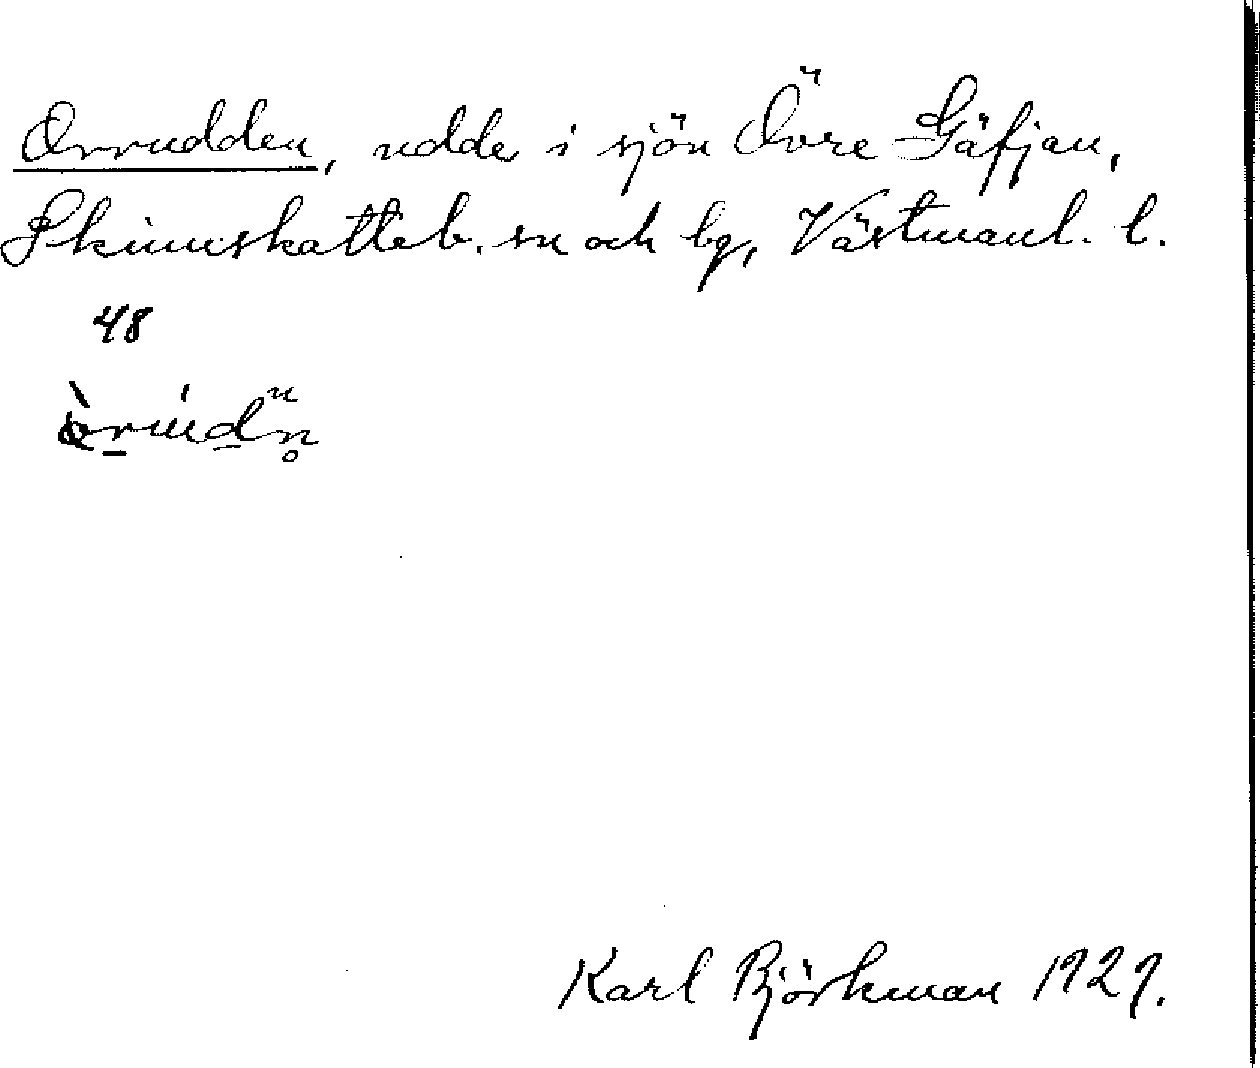 Orrudden, udde i sjön Övre Gäfjan,
Skinnskatteb. sn och bg, Västmanl. l.
48
Karl Björkman 1929.